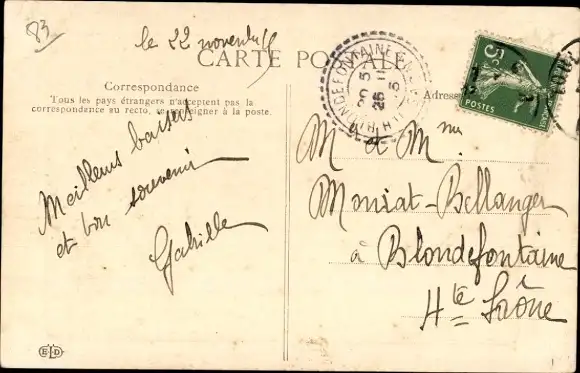 83
le 22 novembre
CARTE POSTALE
Correspondance
Tous les pays étrangers n'acceptent pas la
correspondance au recto, se renseigner à la poste.
Meilleurs baisers
et bon souvenir
Gabrielle
BLONDEFONTAINE
5
POSTES
M et Mme
Moniat-Bellanger
à Blondefontaine
Hte Saône
ELD